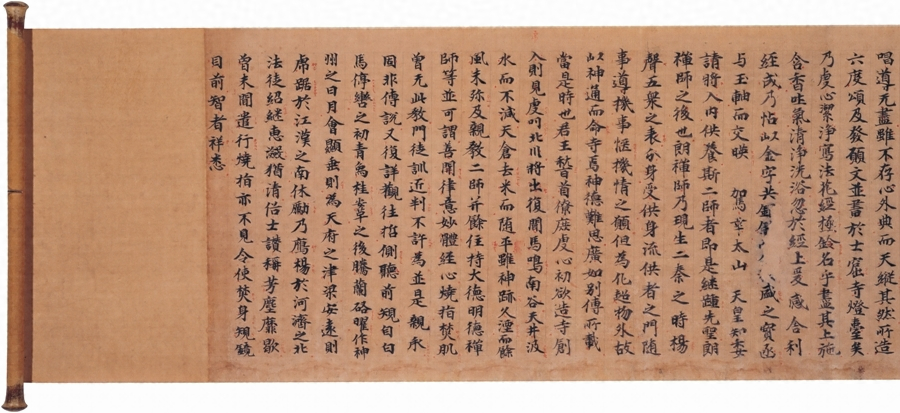 唱導无盡雖不存心外典而天縱其然所造
六度頌及發願文並書於士窟寺燈臺矣
乃虔心潔淨寫法花經極銓名手盡其上施
含香吐氣清淨洗浴忽於經上爰感舍利
經成乃帖以金字共盛之寶函
与玉軸而交暎 駕幸太山 天皇知委
請將入內供養斯二師者即是繼踵先聖朗
禪師之後也朗禪師乃現生二秦之時揚
聲五衆之表分身受供身流供者之門隨
事導機事愜機情之願但為化超物外故
以神通而命寺焉神德難思廣如別傳所載
當是時也君王稽首僚庶虔心初欲造寺創
入則見虎叫北川將出復聞馬鳴南谷天井汲
水而不減天倉去米而随平雖神跡久湮而餘
風未殄及親教二師并餘住持大德明德禪
師等並可謂善閑律意妙體經心燒指焚肌
曾无此教門徒訓近判不許為並是親承
固非傳說又復詳觀往哲側聽前規自白
馬停轡之初青烏桂草之後騰蘭啓曜作神
州之日月會顯垂則為天府之津梁安遠則
虎踞於江漢之南休勵乃鷹楊於河濟之北
法徒紹繼惠瀓猶清俗士讚稱芳塵靡歇
曾未聞遣行燒指亦不見令使焚身規鏡
目前智者祥悉